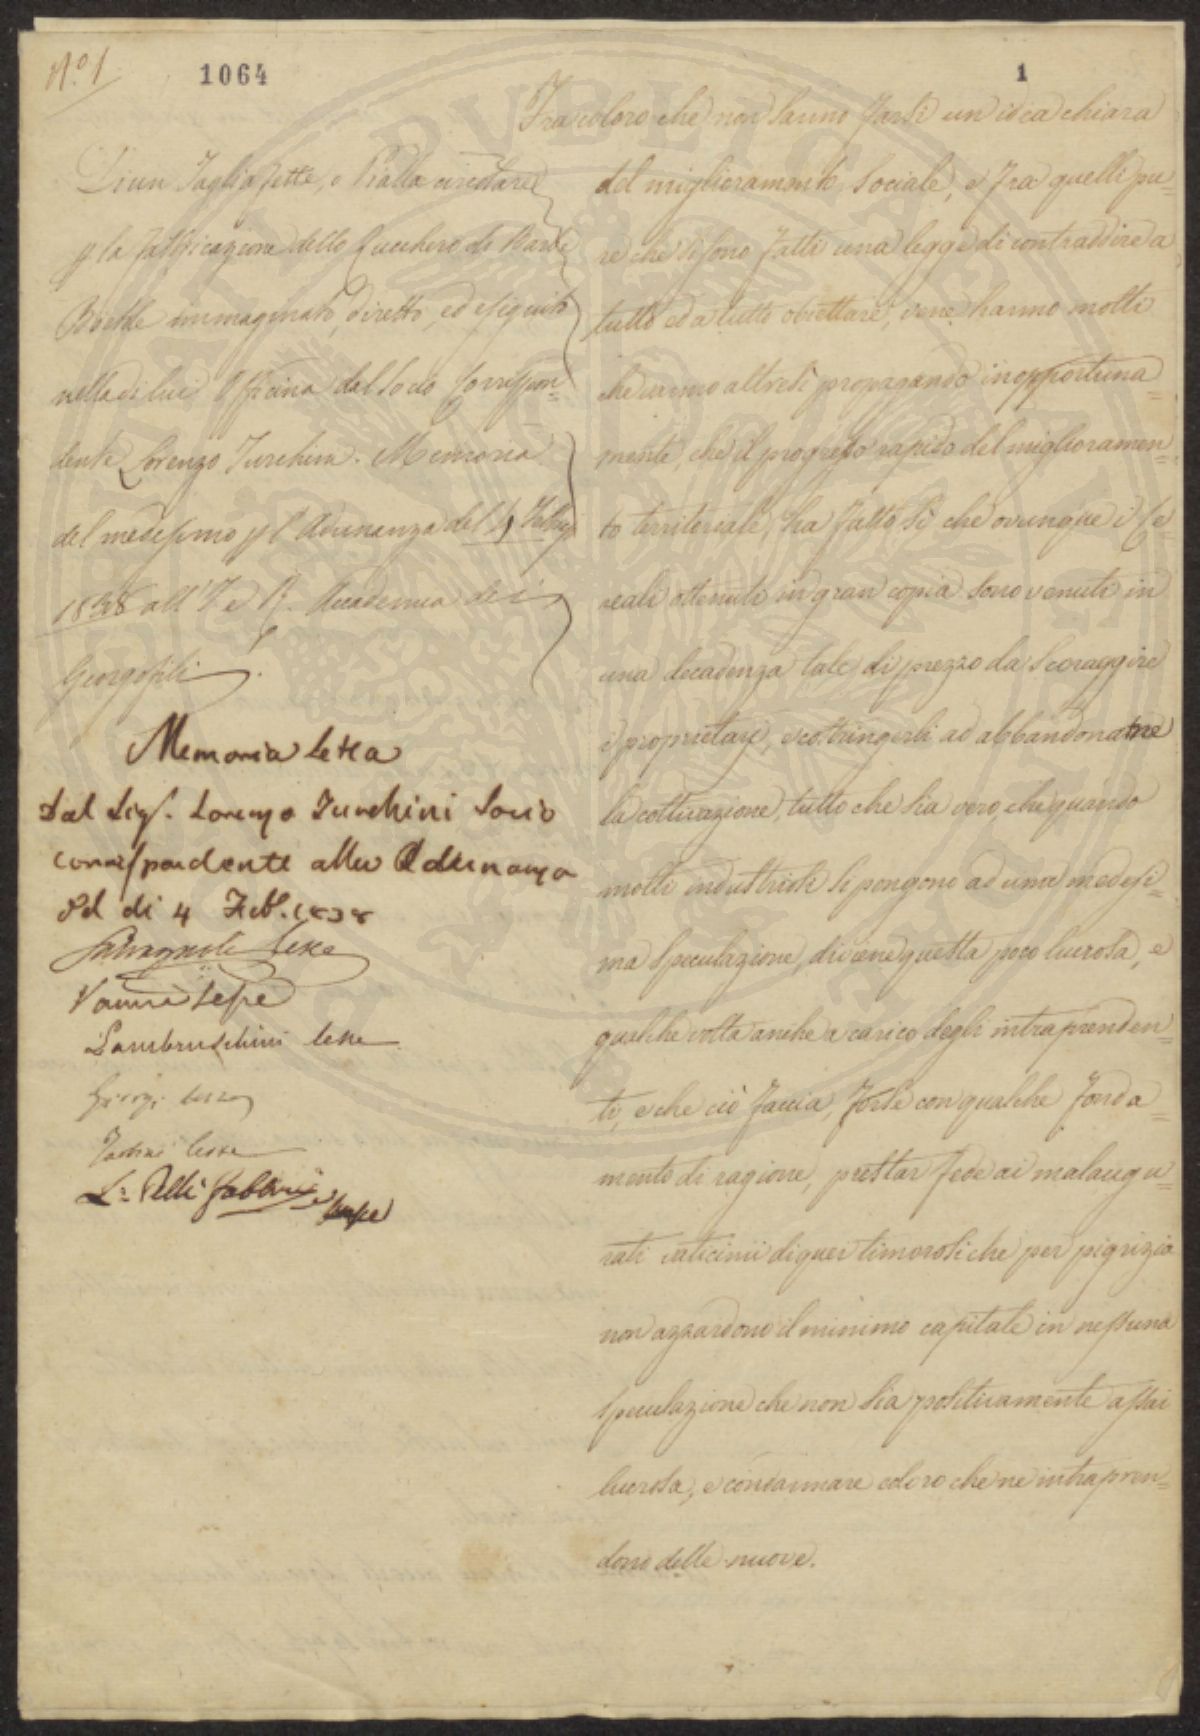 N.º 1
1064
1
Di un Taglia fette, o Pialla circolare
p la fabbricazione dello Zucchero di Barbe
Bietole immaginato, diretto, ed eseguito
nella di lui Officina dal Socio Corrispon=
dente Lorenzo Turchini. Memoria
del medesimo p l'Adunanza del 4 Febb.
1838 all' I. e R. Accademia dei
Georgofili.
Memoria letta
Dal Sig. Lorenzo Turchini Socio
corrispondente alla Adunanza
del dì 4 Feb. 1838
Salvagnoli lesse
Vanni lesse
Lambruschini lesse
Giorgi lesse
lesse
L. Pelli Fabbroni lesse
Fra coloro che non sanno farsi un idea chiara
del miglioramento sociale, e fra quelli pu=
re che si sono fatti una legge di contraddire a
tutto ed a tutto obiettare, vene hanno molti
che vanno altresì propagando inopportuna=
mente, che il progresso rapido del miglioramen=
to territoriale, ha fatto sì che ovunque i Ce=
reali ottenuti in gran copia sono venuti in
una decadenza tale di prezzo da scoraggire
i proprietarj, e costringerli ad abbandonarne
la coltivazione, tutto che sia vero, che quando
molti industriosi si pongono ad una medesi=
ma speculazione, diviene questa poco lucrosa, e
qualche volta anche a carico degli intraprenden=
ti, e che ciò faccia, forse con qualche fonda=
mento di ragione, prestar fede ai malaugu=
rati vaticinii di quei timorosi che per pigrizia
non azzardono il minimo capitale in nessuna
speculazione che non sia positivamente assai
lucrosa, e condannare coloro che ne intrapren=
dono delle nuove.